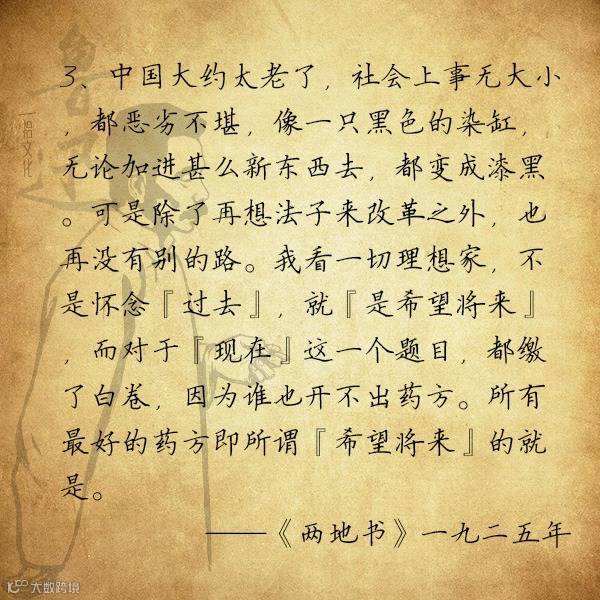 3、中国大约太老了，社会上事无大小
，都恶劣不堪，像一只黑色的染缸，
无论加进甚么新东西去，都变成漆黑
。可是除了再想法子来改革之外，也
再没有别的路。我看一切理想家，不
是怀念『过去』，就『是希望将来』
，而对于『现在』这一个题目，都缴
了白卷，因为谁也开不出药方。所有
最好的药方即所谓『希望将来』的就
是。
——《两地书》一九二五年
鲁迅
一拾文化
大数跨境